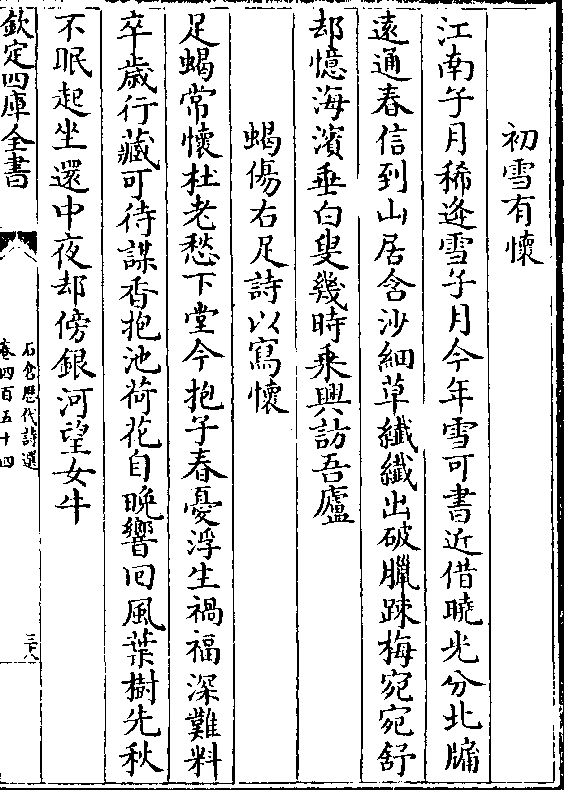 初雪有懷
江南子月稀逢雪子月今年雪可書近借曉光分北牖
遠通春信到山居含沙細草纖纖出破臘踈梅宛宛舒
却憶海濱垂白叟幾時乗興訪吾廬
蝎傷右足詩以寫懷
足蝎常懷杜老愁下堂今抱子春憂浮生禍福深難料
卒歲行藏可待謀香抱池荷花自晩響囘風葉樹先秋
不眠起坐還中夜却傍銀河望女牛
欽定四庫全書
石倉歴代詩選
卷四百五十四
三十八